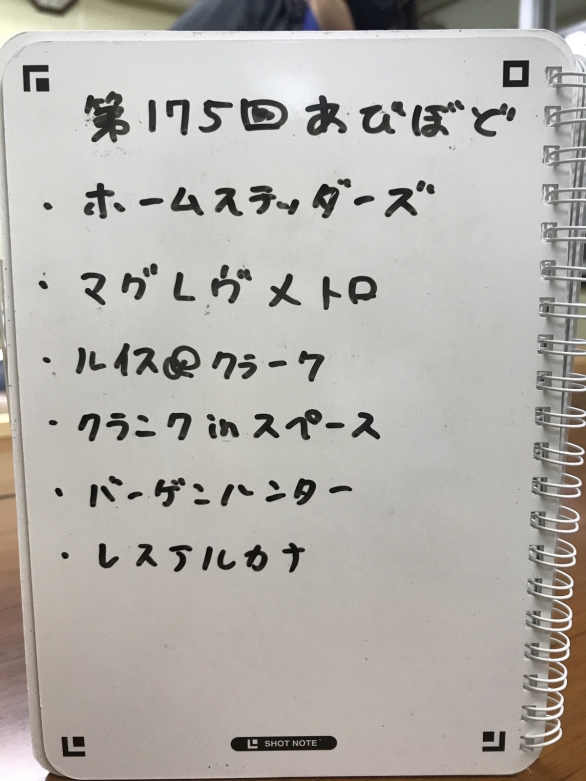 第175回あびぼど
・ホームステッダーズ
・マグレヴメトロ
・ルイス@クラーク
・クランク in スペース
・バーゲンハンター
・レスアルカナ
SHOT NOTE